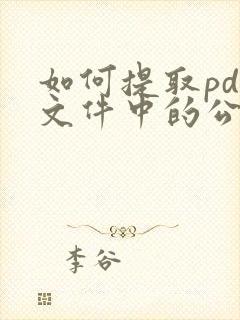 如何提取pd
文件中的公
李谷